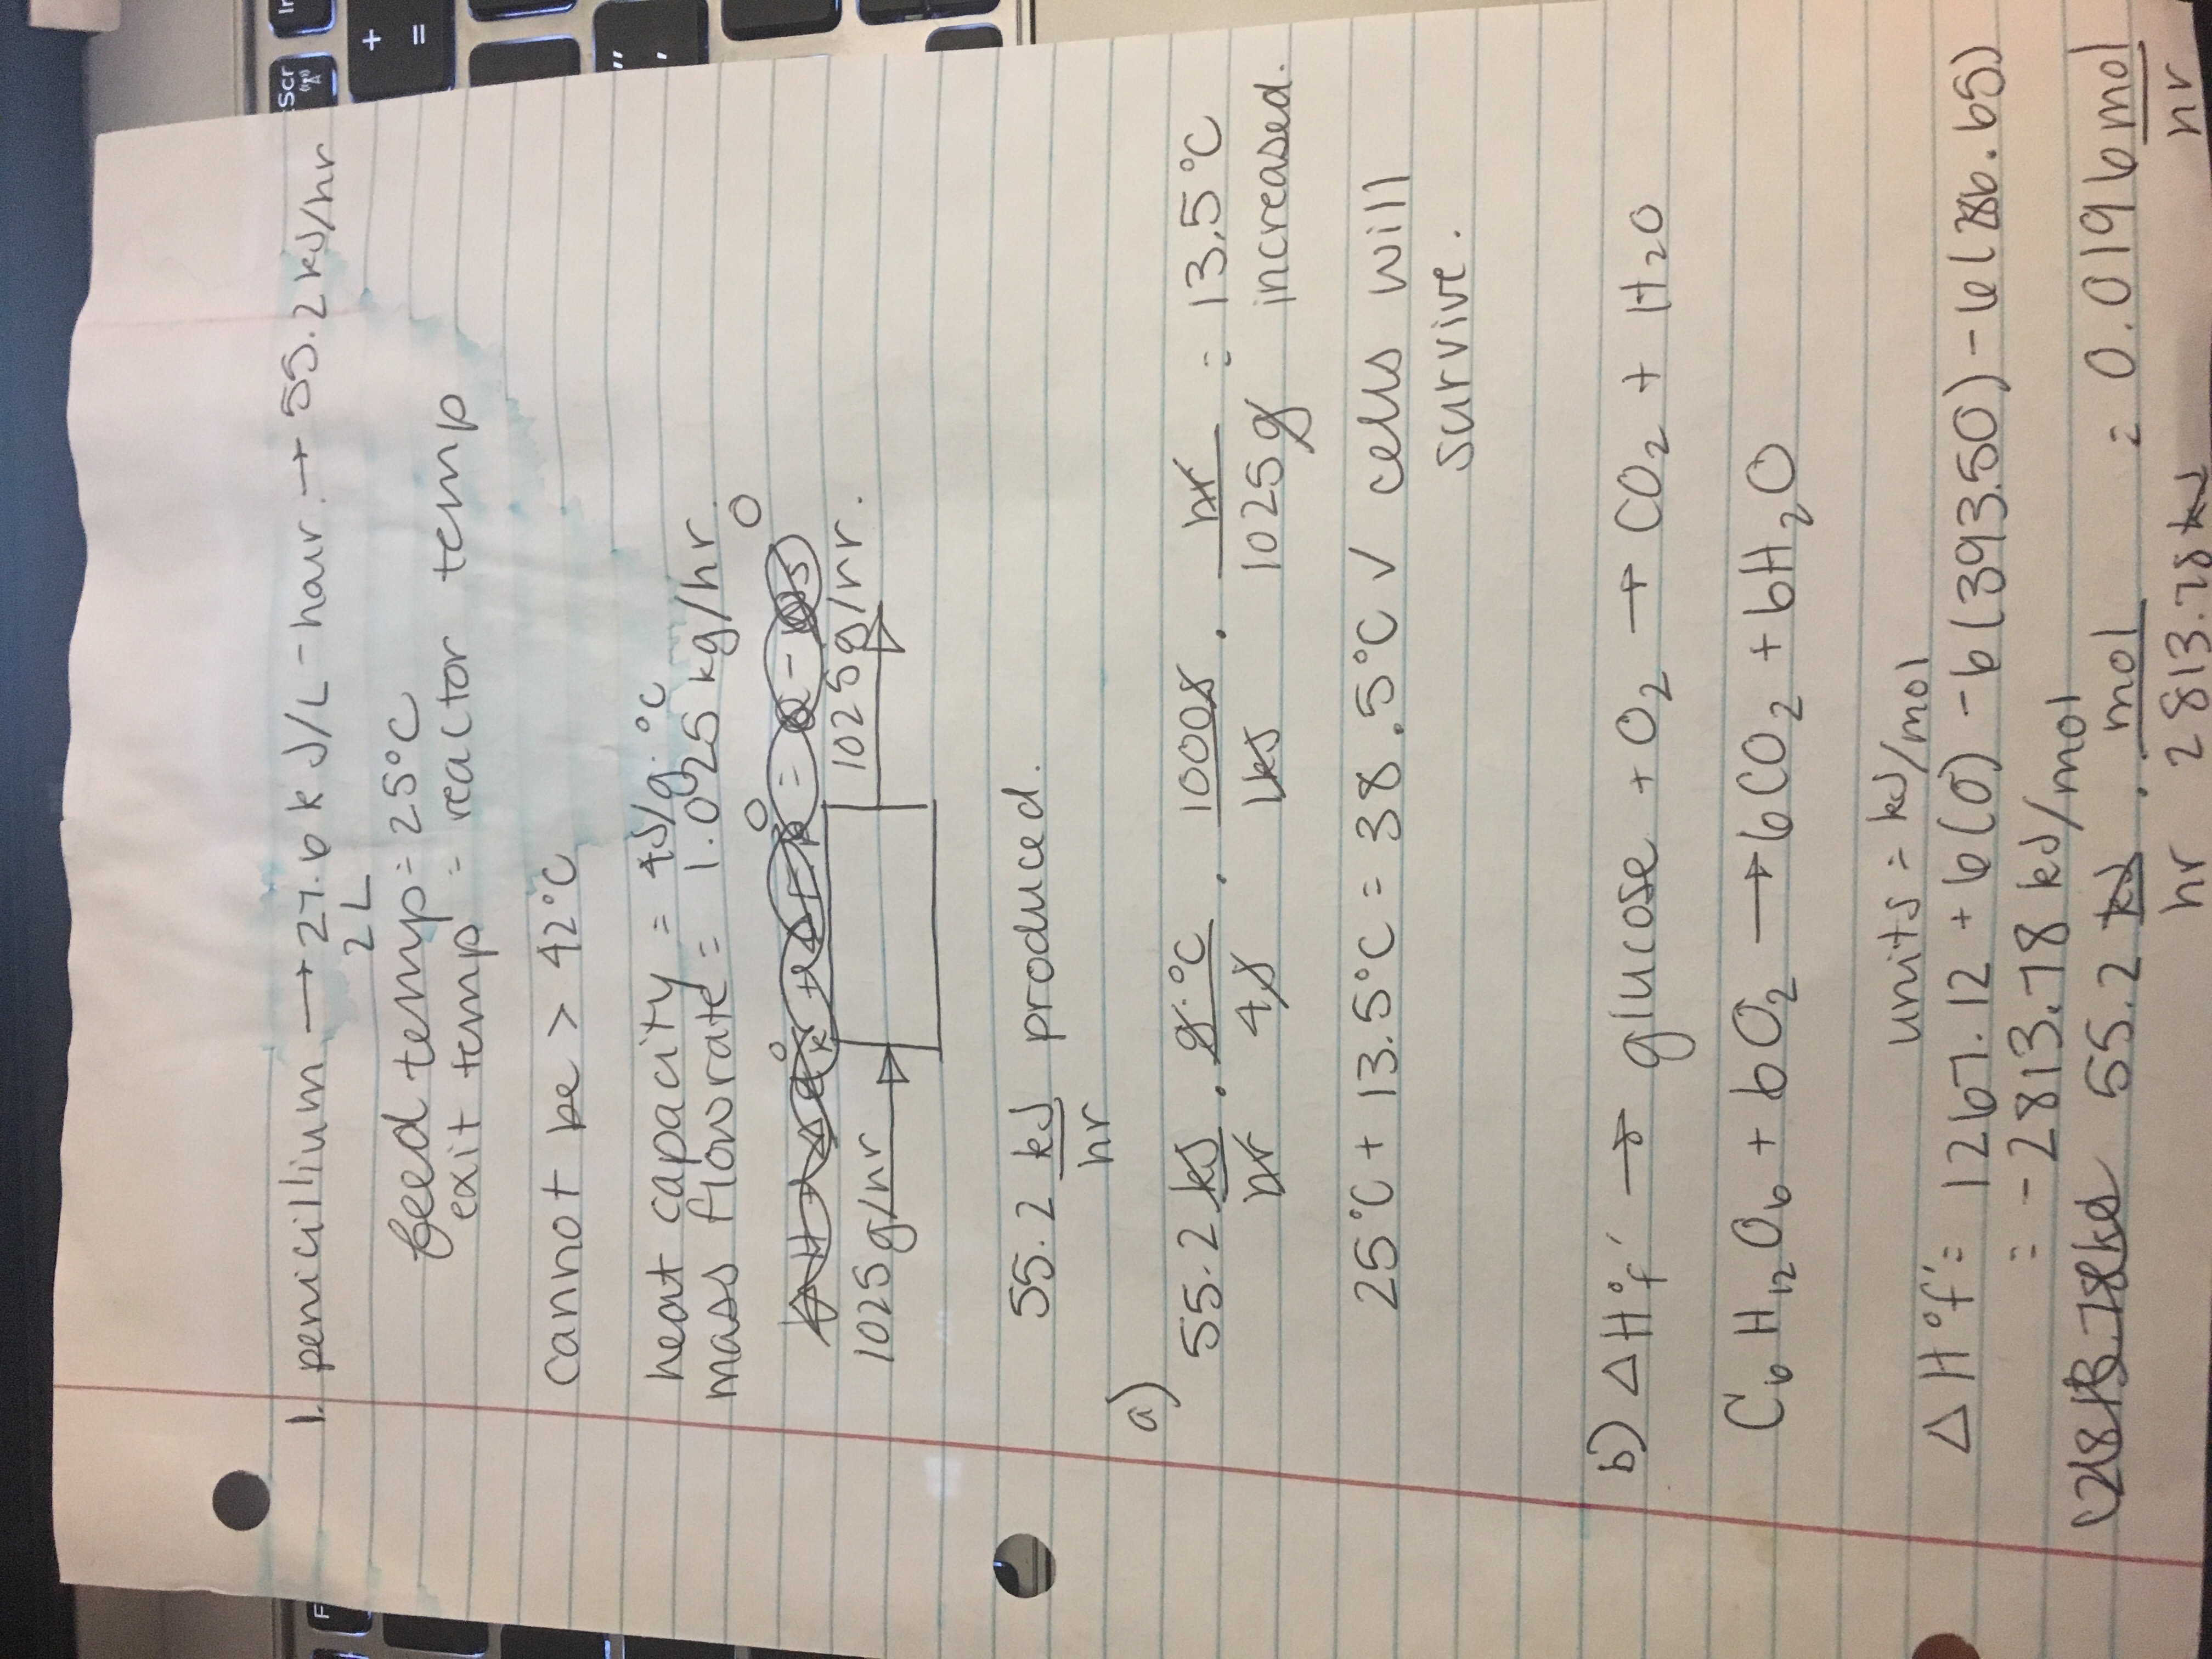 1. penicillium → 27.6 kJ/L-hour. → 55.2 kJ/hr
2L
feed temp = 25°C
exit temp = reactor temp
cannot be > 42°C
heat capacity = 4J/g·°C
mass flowrate = 1.025 kg/hr.
1025 g/hr
1025 g/hr.
55.2 kJ/hr produced.
a)
55.2 kJ/hr · g·°C/4J · 1000J/1kJ · hr/1025g = 13.5°C
increased.
25°C + 13.5°C = 38.5°C ✓ cells will
survive.
b) ΔH°f' → glucose + O₂ → CO₂ + H₂O
C₆H₁₂O₆ + 6O₂ → 6CO₂ + 6H₂O
units = kJ/mol
ΔH°f' = 1267.12 + 6(0) - 6(393.50) - 6(286.65)
= -2813.78 kJ/mol
55.2 kJ/hr · mol/2813.78 kJ = 0.0196 mol/hr
Scr
+
=
"
,
F